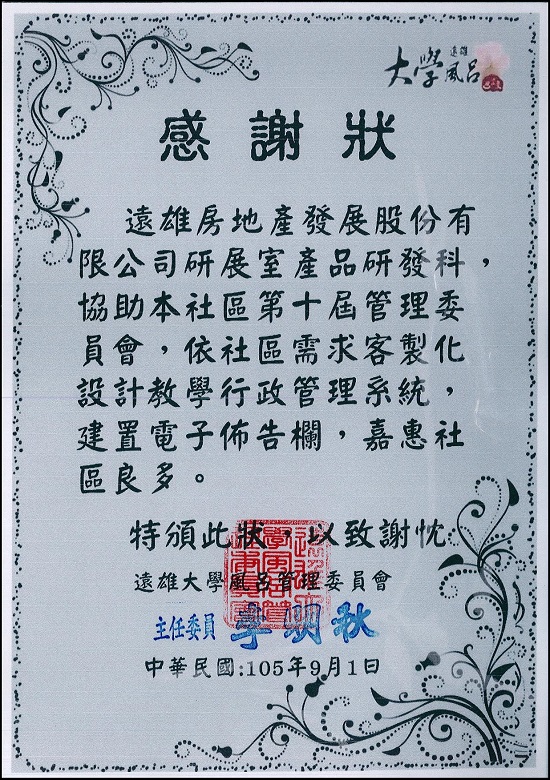 遠雄
大學風呂
感謝狀
遠雄房地產發展股份有
限公司研展室產品研發科，
協助本社區第十屆管理委
員會，依社區需求客製化
設計教學行政管理系統，
建置電子佈告欄，嘉惠社
區良多。
特頒此狀，以致謝忱
遠雄大學風呂管理委員會
主任委員 李明秋
中華民國:105年9月1日